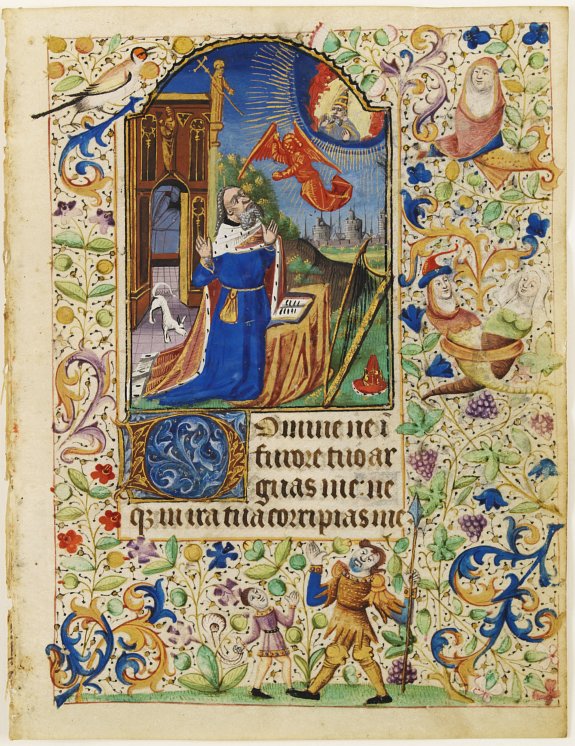 Domine ne ī
furore tuo ar
guas me: ne
qꝫ in ira tua corripias me